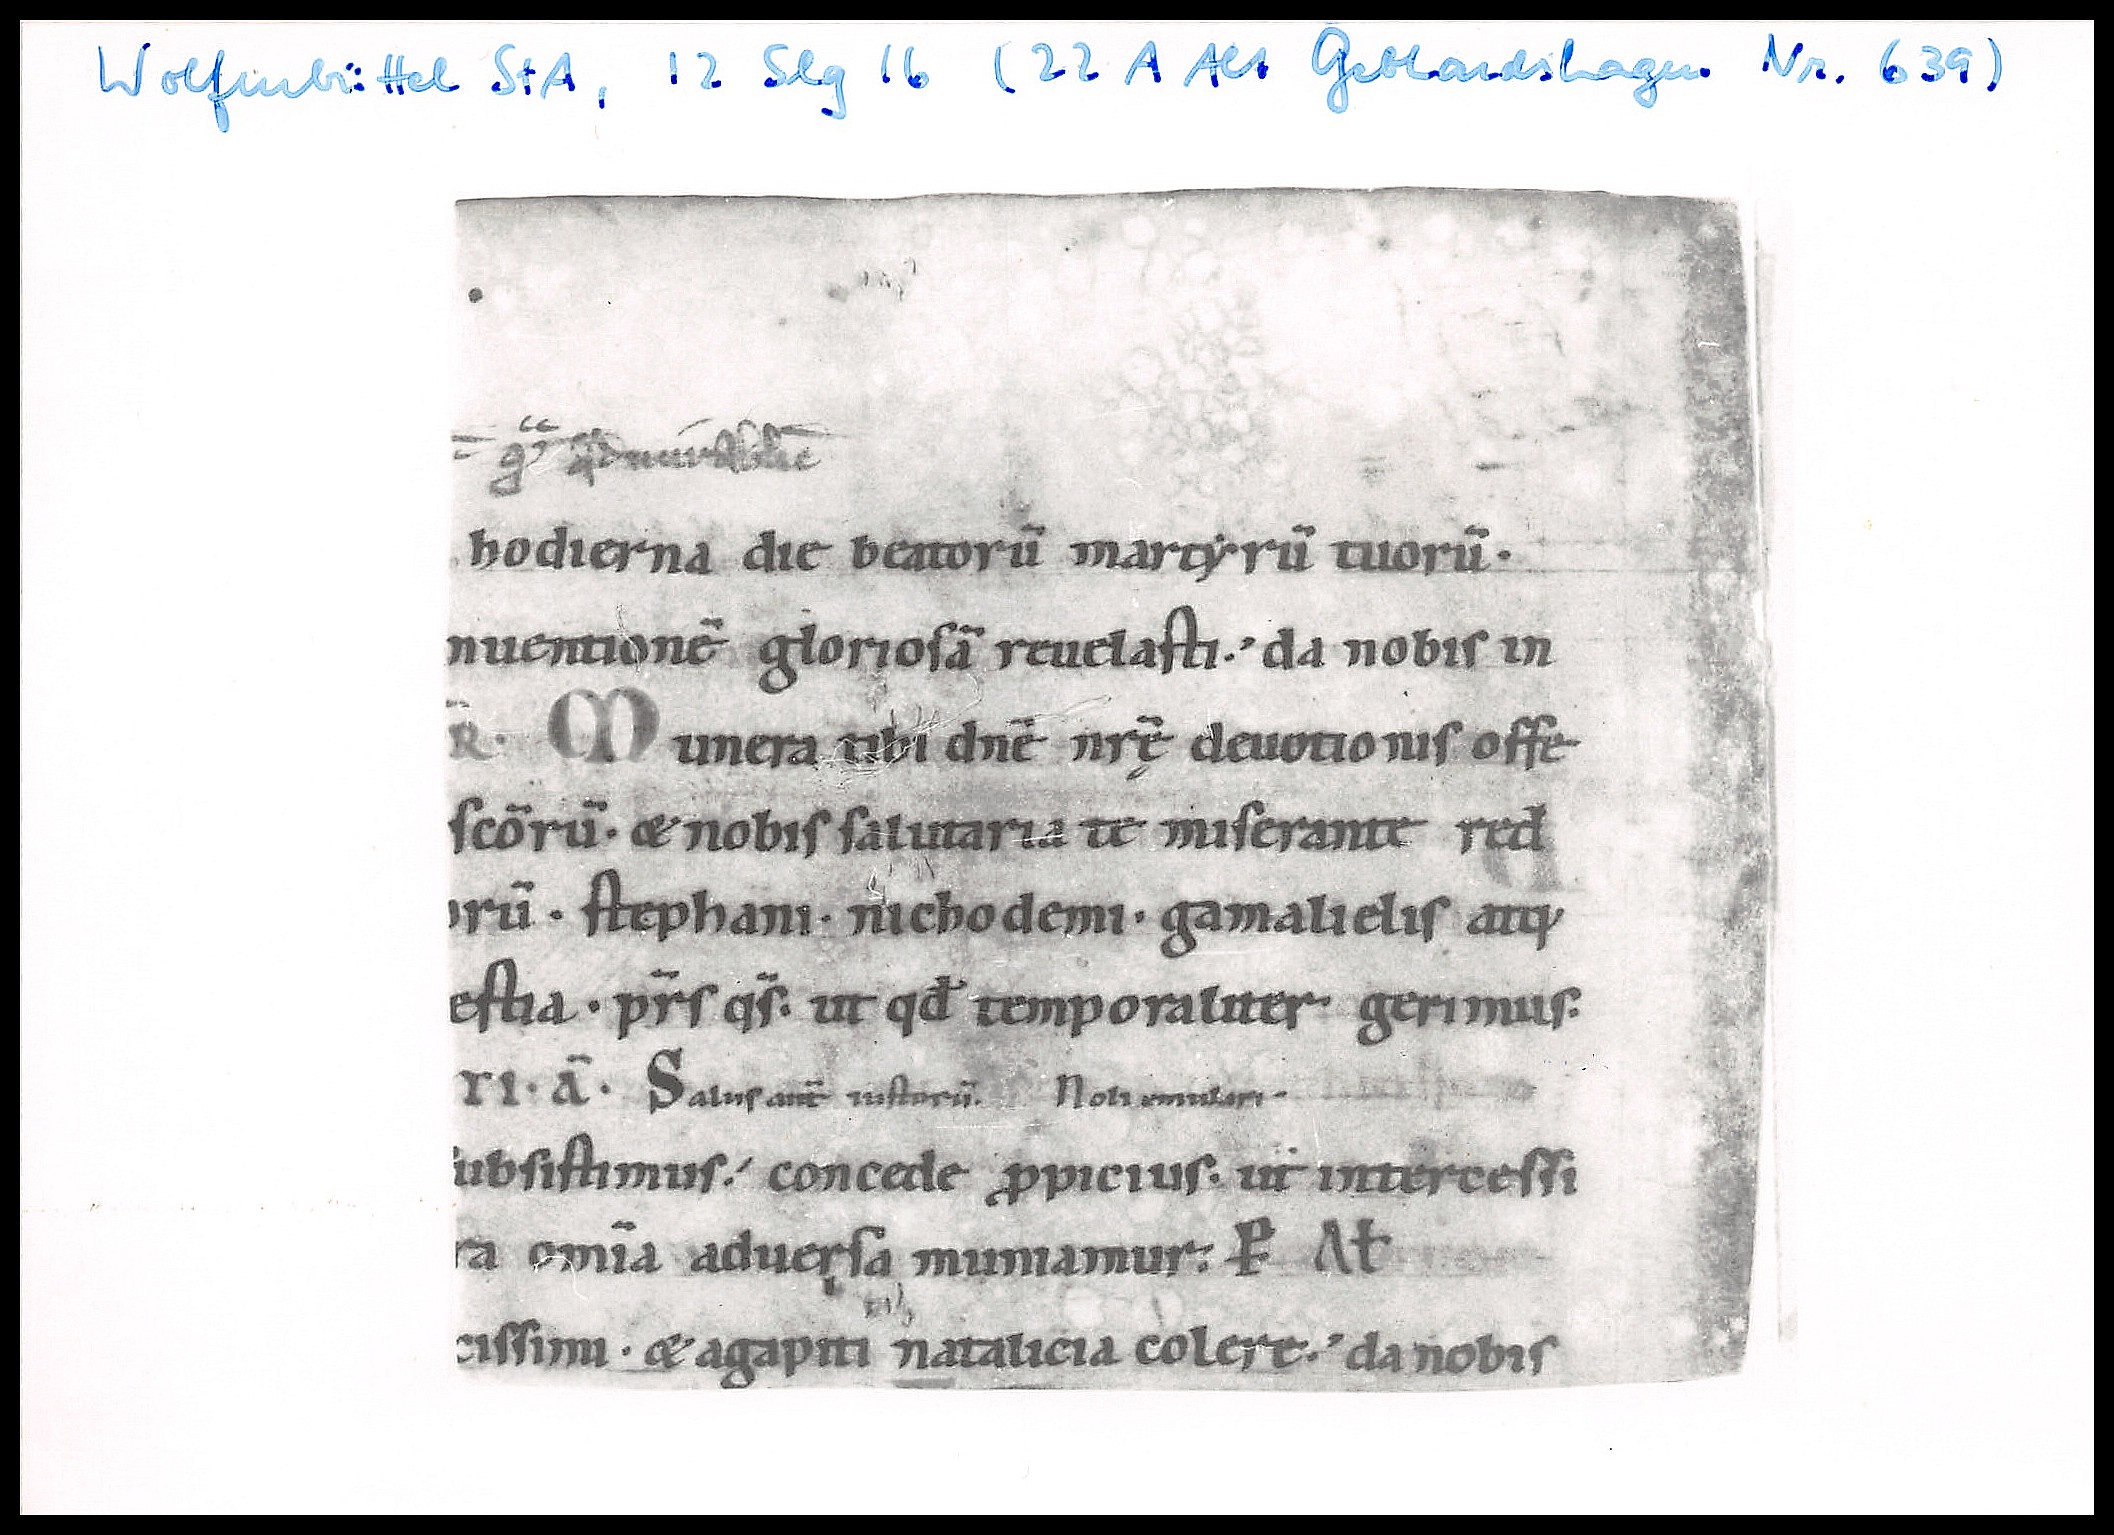 Wolfenbüttel StA, 12 Slg 16 (22 A Alt Gebhardshagen Nr. 639)
hodierna die beatorū martyrū tuorū·
nuentionē gloriosā reuelasti·' da nobis in
R̄· Munera tibi dn̄e nr̄ę deuotionis offe
scōrū· & nobis salutaria te miserante red
orū· stephani· nichodemi· gamalielis atq;
estia· p̄rs q̄s· ut qđ temporaliter gerimus·
ri· ā· Salus aut̄ iustorū. Noli emulari·
ubsistimus·' concede ꝓpicius· ut intercessi
ra om̄ia aduersa muniamur· P Aƚ
cissimi· & agapiti natalicia colere·' da nobis